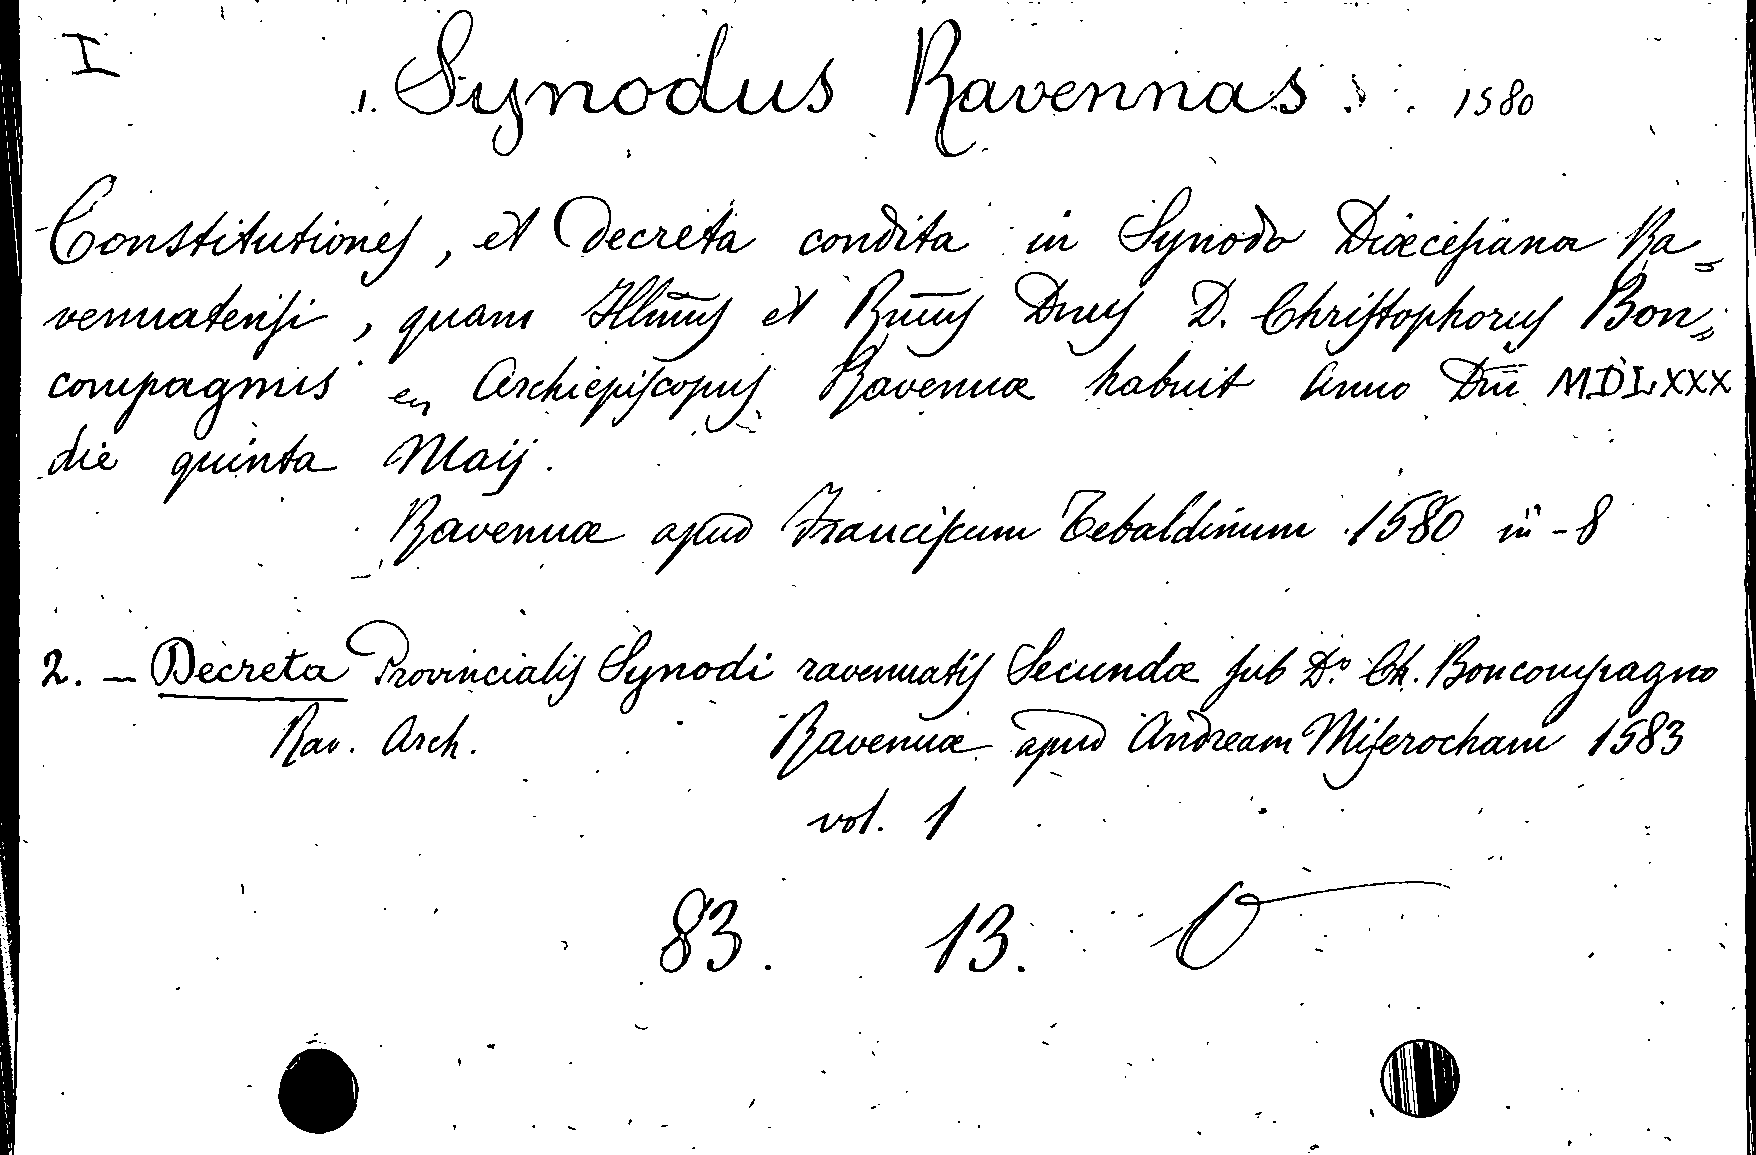 I
1. Synodus Ravennas. 1580
Constitutiones, et Decreta condita in Synodo Diœcesiana Ra=
vennatensi, quam Illm̄us et Rm̄us Dnus D. Christophorus Bon=
compagnus en Archiepiscopus Ravennæ habuit Anno Dn̄i MDLXXX
die quinta Maij.
Ravennæ apud Franciscum Tebaldinum 1580 in-8
2. — Decreta Provincialis Synodi ravennatis Secundæ sub D.º Ch. Boncompagno
Rav. Arch. Ravennæ apud Andream Miserocham 1583
vol. 1
83. 13. O